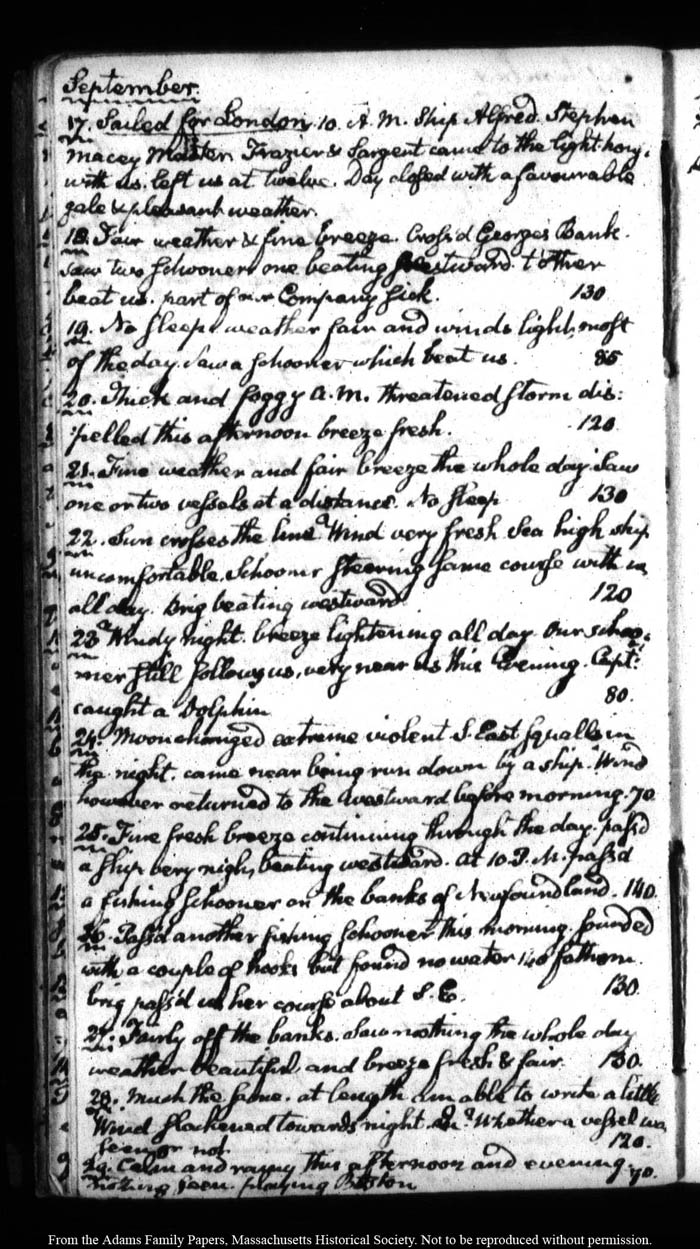 September.
17. Sailed for London. 10. A.M. Ship Alfred. Stephen
Macey Master. Frazier & Sargent came to the light-hous.
with us. left us at twelve. Day closed with a favourable
gale & pleasant weather.
18. Fair weather & fine breeze. Cross'd Georges Bank.
Saw two schooners one beating westward. t'other
beat us. part of our Company sick. 130
19. No sleep. weather fair and winds light, most
of the day. Saw a schooner which beat us. 85
20. Thick and foggy A.M. threatened storm dis:
:pelled this afternoon breeze fresh. 120
21. Fine weather and fair breeze the whole day. Saw
one or two vessels at a distance. No sleep 130
22. Sun crosses the line. Wind very fresh. Sea high ship
uncomfortable. Schooner steering same course with us
all day. Brig beating westward 120
23. Windy night. breeze lightening all day. Our schoo:
ner still follows us, very near us this Evening. Capt:
caught a Dolphin 80.
24. Moon changed extreme violent S. East squalls in
the night. came near being run down by a ship. Wind
however returned to the westward before morning. 70
25. Fine fresh breeze continuing through the day. pass'd
a ship very nigh, beating westward. At 10. P.M. pass'd
a fishing schooner on the banks of Newfoundland. 140
26. Pass'd another fishing schooner this morning. sounded
with a couple of hooks but found no water 140 fathom.
brig pass'd us her course about S. E. 130.
27. Fairly off the banks. Saw nothing the whole day
weather beautiful and breeze fresh & fair. 130.
28. Much the same. at length am able to write a little
Wind slackened towards night. Whether a vessel was
seen or not. 120.
29. Calm and rainy this afternoon and evening.
nothing seen. playing Boston 70.
From the Adams Family Papers, Massachusetts Historical Society. Not to be reproduced without permission.